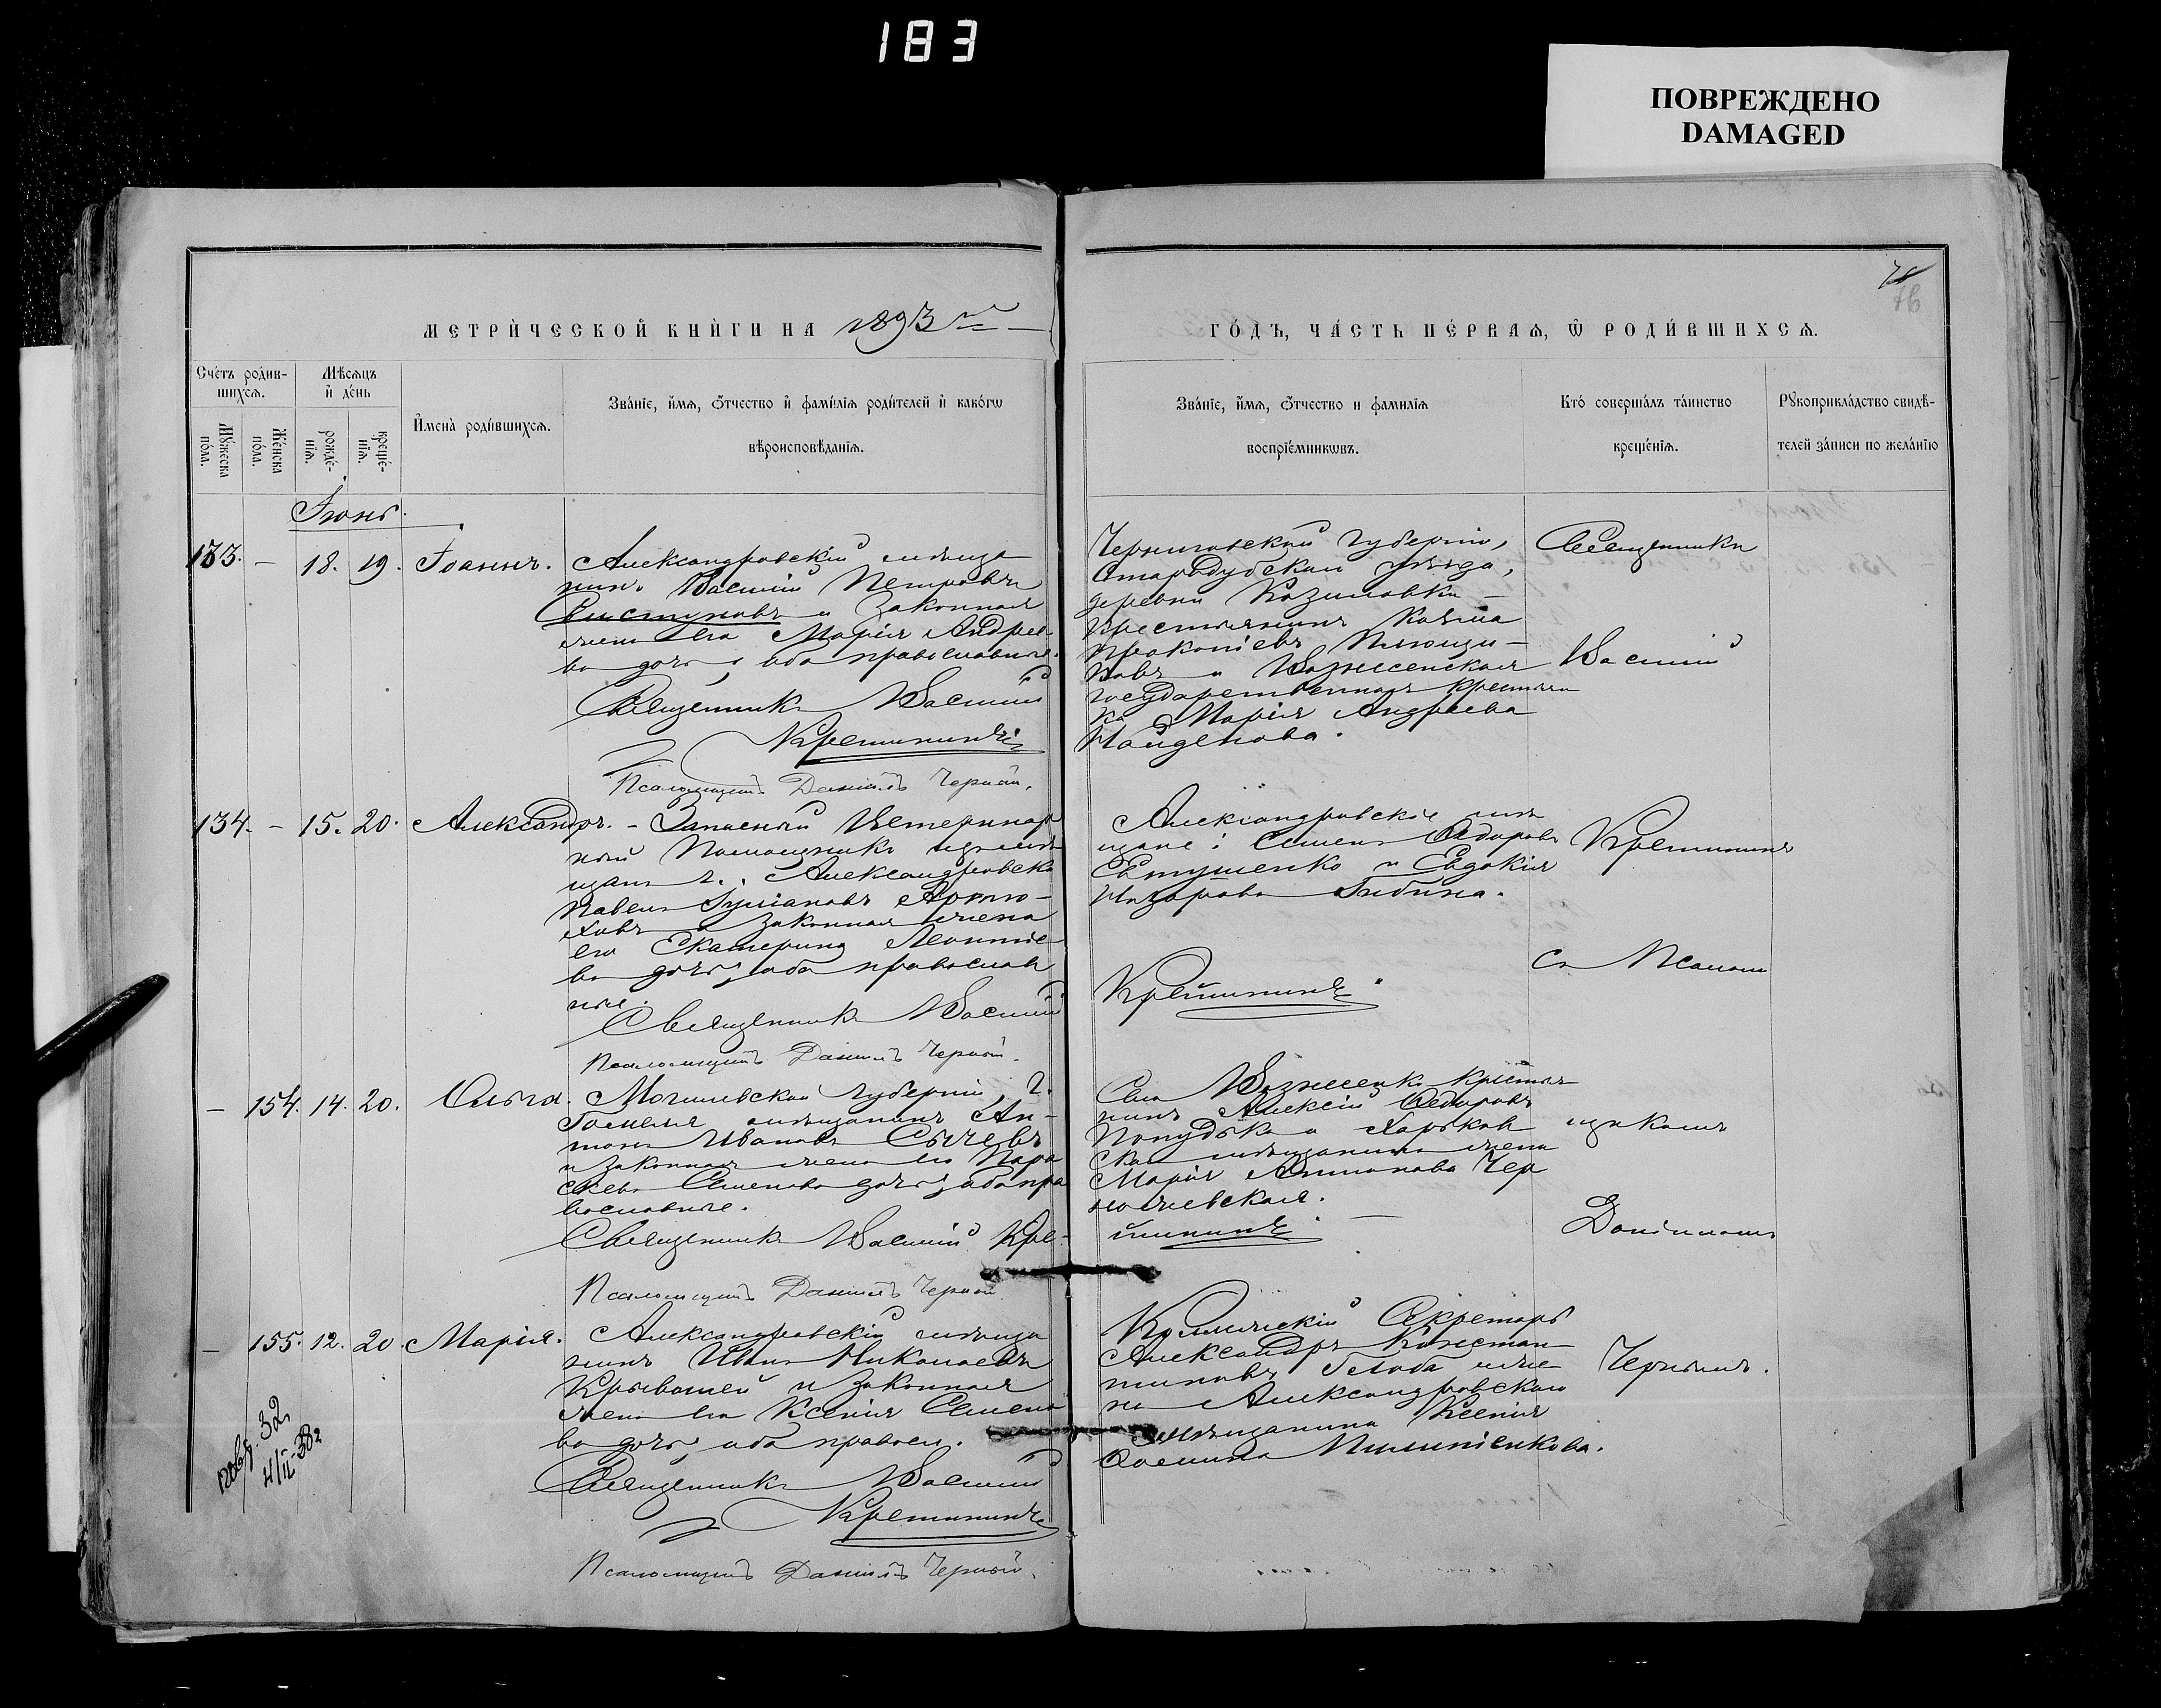 183
ПОВРЕЖДЕНО
DAMAGED
76
МЕТРИ́ЧЕСКОЙ КНИ́ГИ НА 1893 й
ГО́ДЪ, ЧА́СТЬ ПЕ́РВАЯ, Ѿ РОДИ́ВШИХСЯ.
Сче́тъ роди́в-
шихся.
Мѣсяцъ
и де́нь
Мꙋжеска
по́ла.
Же́нска
по́ла.
рожде́-
нїя.
креще́-
нїя.
И҆мена̀ роди́вшихся.
Зва́нїе, и҆́мя, ѻ҆́тчество и҆ фами́лїя роди́телей и҆ како́гѡ
вѣроисповѣ́данїя.
Зва́нїе, и҆́мя, ѻ҆́тчество и фами́лїя
воспрїе́мникѡвъ.
Кто́ соверша́лъ та́инство
креще́нїя.
Рꙋкоприкла́дство свидѣ́-
телей за́писи по жела́нїю
Іюнь.
133. — 18. 19. Іоаннъ.
Александровскій мѣща
нинъ Василій Петровъ
Свистуновъ и законная
жена его Марія Андрее
ва дочь, оба православные.
Священникъ Василій
Крещининъ
Псаломщикъ Даніилъ Черный.
Черниговской губерніи,
Стародубскаго уѣзда,
деревни
крестьянинъ Козьма
Прокопіевъ
новъ и Вознесенская
государственная крестьян
ка Марія Андреева
Найденова.
Священникъ
Василій
134. — 15. 20. Александръ.
Запасный Ветеринар
ный Помощникъ изъ мѣ
щанъ г. Александровска
Павелъ Іуліановъ Артю-
ховъ и законная жена
его Екатерина Леонтіе
ва дочь, оба православ
ные.
Священникъ Василій
Псаломщикъ Даніилъ Черный.
Александровскіе мѣ
щане: Семенъ Ѳедоровъ
Евтушенко и Евдокія
Назарова Гибина.
Крещининъ
Крещининъ
съ Псалом
— 154. 14. 20. Ольга.
Могилевской губерніи, г.
Гомеля мѣщанинъ Ан-
тонъ Ивановъ Сычевъ
и законная жена его Пара
скева Семенова дочь, оба пра
вославные.
Священникъ Василій Кре-
Псаломщикъ Даніилъ Черный
Села Вознесенки крестья
нинъ Алексій Ѳедоровъ
и Харьков
ская мѣщанина жена
Марія Антонова Чер
ножевская.
щининъ
щикомъ
Даніиломъ
— 155. 12. 20. Марія.
Александровскій мѣща
нинъ Иванъ Николаевъ
Кривошей и законная
жена его Ксенія Семено
ва дочь, оба правосл.
Священникъ Василій
Крещининъ
Псаломщикъ Даніилъ Черный.
Коллежскій Секретарь
Александръ Констан
тиновъ Глоба и же
на Александровскаго
мѣщанина Ксенія
Ѳомина
Чернымъ.
32
4/II-38 г